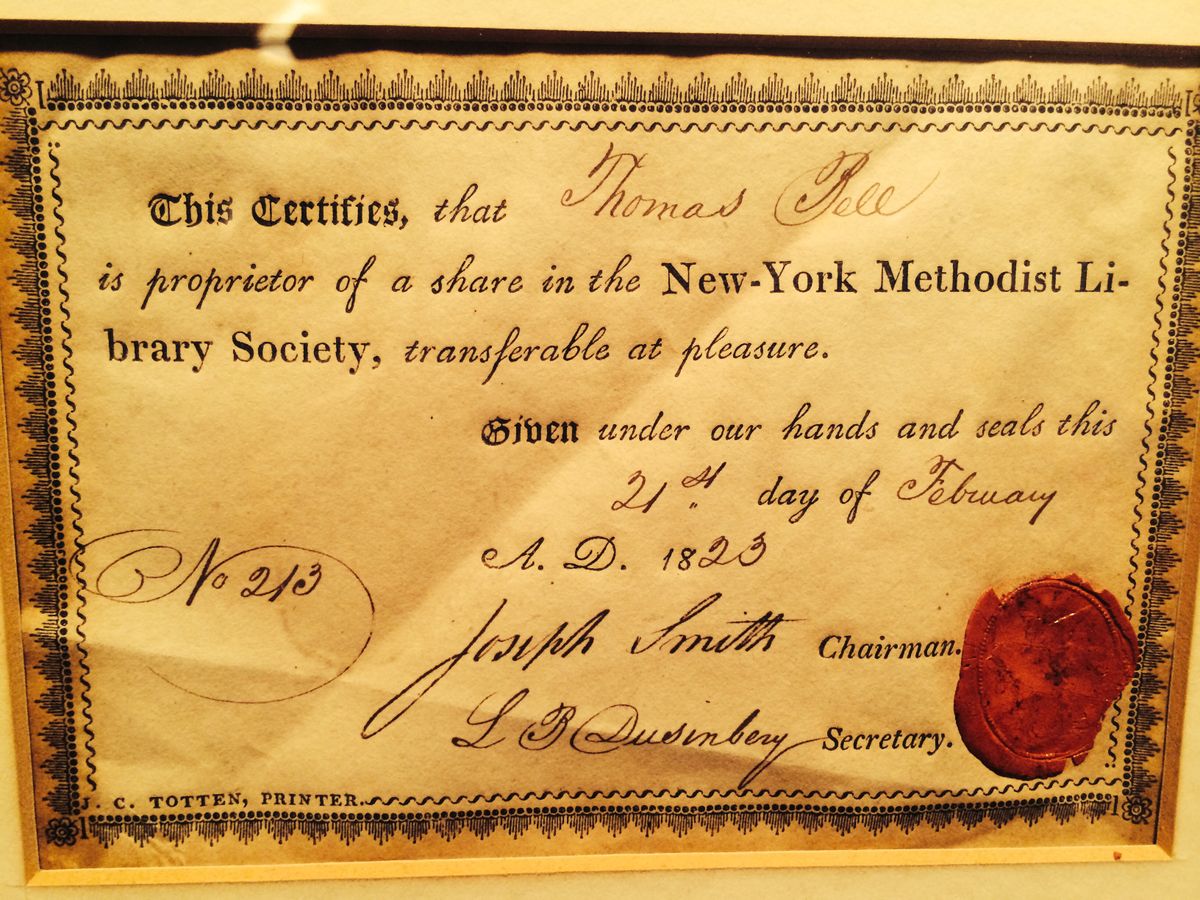 This Certifies, that Thomas Bell
is proprietor of a share in the New-York Methodist Li-
brary Society, transferable at pleasure.
Given under our hands and seals this
21st day of February
A. D. 1823
No 213
Joseph Smith Chairman.
L B Dusinbery Secretary.
J. C. TOTTEN, PRINTER.